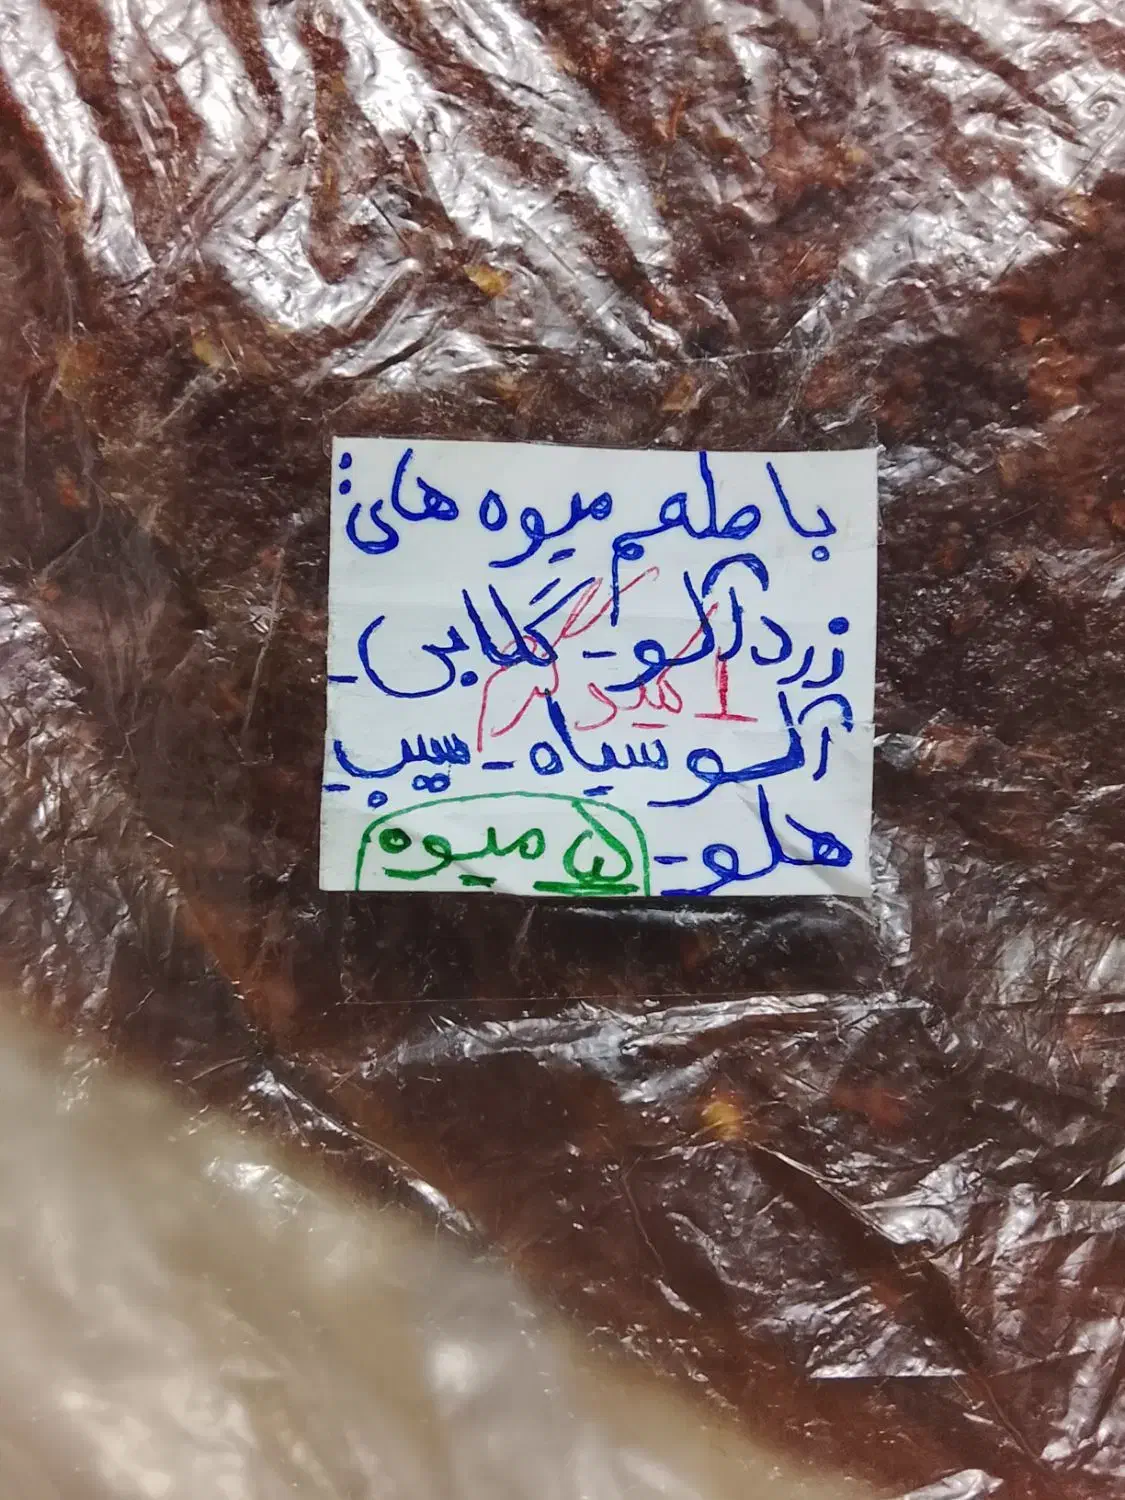 با طعم میوه های:
زردآلو - گلابی -
1 کیلوگرم
آلو سیاه - سیب -
هلو - ۵ میوه